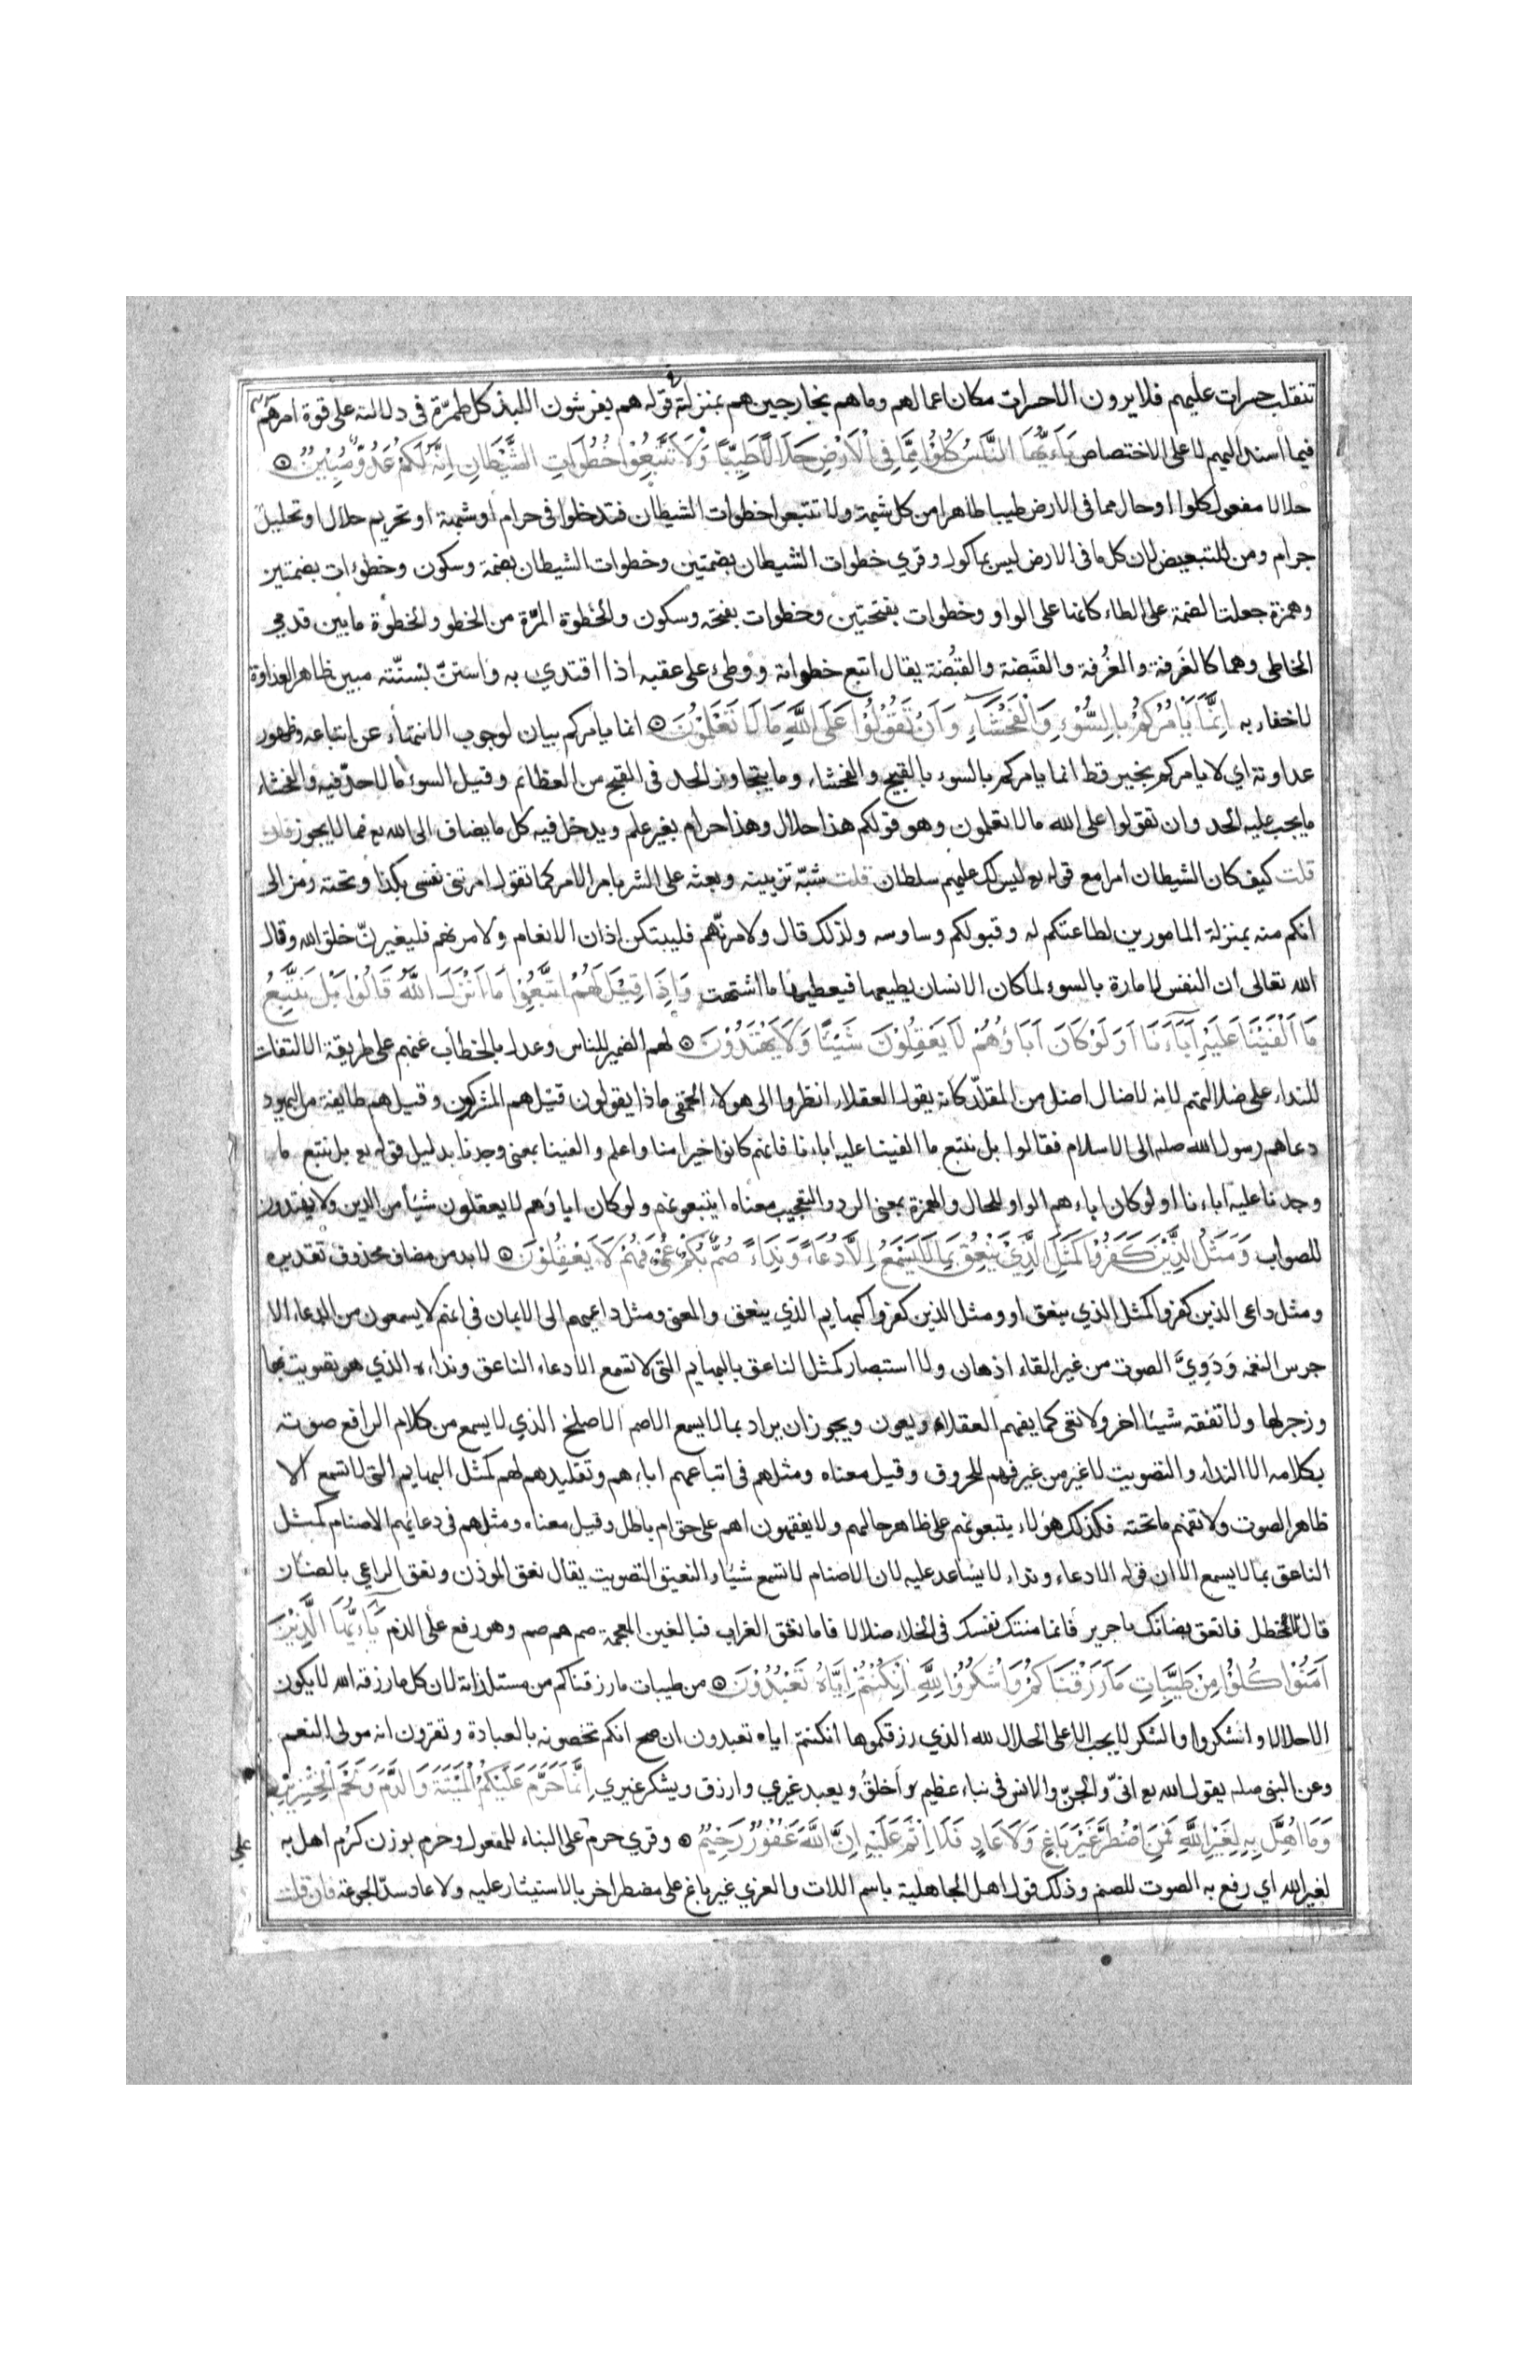 تنقلب حسرات عليهم فلا يرون الا حسرات مكان اعمالهم وما هم بخارجين هم بمنزلة قوله هم يفرشون اللبد كل طمرّة فى دلالته على قوة امرهم
فيما اسند اليهم لا على الاختصاص يَآءَيُّهَا النَّاسُ كُلُوْا مِمَّا فِى الْاَرْضِ حَلَالًا طَيِّبًا وَلَا تَتَّبِعُوْا خُطُوَاتِ الشَّيْطَانِ اِنَّهُ لَكُمْ عَدُوٌّ مُبِيْنٌ
حلالا مفعول كلوا او حال مما فى الارض طيبا طاهرا من كل شبهة ولا تتبعوا خطوات الشيطان فتدخلوا فى حرام او شبهة او تحريم حلال او تحليل
حرام ومن للتبعيض لان كل ما فى الارض ليس بماكول وقري خطوات الشيطان بضمتين وخطوات الشيطان بضمة وسكون وخطؤات بضمتين
وهمزة جعلت الضمة على الطاء كانها على الواو وخطوات بفتحتين وخطوات بفتحة وسكون والخَطوة المرّة من الخطو والخُطوة ما بين قدمي
الخاطى وهما كالغَرفة والغُرفة والقَبضة والقُبضة يقال اتبع خطواته ووطئ على عقبه اذا اقتدي به واستنّ بسنّته مبين ظاهر العداوة
لا خفاء به اِنَّمَا يَاْمُرُكُمْ بِالسُّوْءِ وَالْفَحْشَآءِ وَاَنْ تَقُوْلُوْا عَلَى اللّٰهِ مَا لَا تَعْلَمُوْنَ انما يامركم بيان لوجوب الانتهاء عن اتباعه وظهور
عداوته اي لا يامركم بخير قط انما يامركم بالسوء بالقبيح والفحشاء وما يتجاوز الحد فى القبح من العظائم وقيل السوء ما لا حدّ فيه والفحشاء
ما يجب عليه الحد وان تقولوا على الله ما لا تعلمون وهو قولكم هذا حلال وهذا حرام بغير علم ويدخل فيه كل ما يضاف الى الله تع مما لا يجوز فان
قلت كيف كان الشيطان امرا مع قوله تع ليس لك عليهم سلطان قلت شبّه تزيينه وبعثه على الشر بامر الامر كما تقول امرتنى نفسى بكذا وتحته رمز الى
انكم منه بمنزلة المامورين لطاعتكم له وقبولكم وساوسه ولذلك قال ولامرنّهم فليبتكن اذان الانعام ولامرنهم فليغيرنّ خلق الله وقال
الله تعالى ان النفس لامارة بالسوء لما كان الانسان يطيعها فيعطيها ما اشتهت وَاِذَا قِيْلَ لَهُمُ اتَّبِعُوْا مَا اَنْزَلَ اللّٰهُ قَالُوْا بَلْ نَتَّبِعُ
مَا اَلْفَيْنَا عَلَيْهِ آبَآءَنَا اَوَلَوْ كَانَ آبَاؤُهُمْ لَا يَعْقِلُوْنَ شَيْئًا وَلَا يَهْتَدُوْنَ لهم الضمير للناس وعدل بالخطاب عنهم على طريقة الالتفات
للنداء على ضلالتهم لانه لا ضال اضل من المقلّد كانه يقول العقلاء انظروا الى هولاء الحمقى ماذا يقولون قيل هم المشركون وقيل هم طايفة من اليهود
دعاهم رسول الله صلم الى الاسلام فقالوا بل نتبع ما الفينا عليه اباءنا فانهم كانوا خيرا منا واعلم والفينا بمعنى وجدنا بدليل قوله تع بل نتبع ما
وجدنا عليه اباءنا اولو كان اباءهم الواو للحال والهمزة بمعنى الرد والتعجيب معناه ايتبعونهم ولو كان اباؤهم لا يعقلون شيئا من الدين ولا يهتدون
للصواب وَمَثَلُ الَّذِيْنَ كَفَرُوْا كَمَثَلِ الَّذِيْ يَنْعِقُ بِمَا لَا يَسْمَعُ اِلَّا دُعَاءً وَنِدَاءً صُمٌّ بُكْمٌ عُمْيٌ فَهُمْ لَا يَعْقِلُوْنَ لا بد من مضاف محذوف تقديره
ومثل داعى الذين كفروا كمثل الذي ينعق او ومثل الذين كفروا كبهايم الذي ينعق والمعنى ومثل داعيهم الى الايمان فى انهم لا يسمعون من الدعاء الا
جرس النغمه وَدَوِيَّ الصوت من غير القاء اذهان ولا استبصار كمثل الناعق بالبهايم التى لا تسمع الا دعاء الناعق ونداءه الذي هو تصويت بها
وزجر لها ولا تفقه شيئا اخر ولا تعى كما يفهم العقلاء ويعون ويجوز ان يراد بما لا يسمع الاصم الاصلخ الذي لا يسمع من كلام الرافع صوته
بكلامه الا النداء والتصويت لا غير من غير فهم للحروف وقيل معناه ومثلهم فى اتباعهم اباءهم وتقليدهم لهم كمثل البهايم التى لا تسمع الا
ظاهر الصوت ولا تفهم ما تحته فكذلك هولاء يتبعونهم على ظاهر حالهم ولا يفقهون اهم على حق ام باطل وقيل معناه ومثلهم فى دعائهم الاصنام كمثل
الناعق بما لا يسمع الا ان قوله الا دعاء ونداء لا يساعد عليه لان الاصنام لا تسمع شيئا والنعيق التصويت يقال نعق الموذن ونعق الراعي بالضان
قال الاخطل فانعق بضانك يا جرير فانما منتك نفسك فى الخلاء ضلالا فاما نغق الغراب فبالغين المعجمة صم هم صم وهو رفع على الذم يَآءَيُّهَا الَّذِيْنَ
آمَنُوْا كُلُوْا مِنْ طَيِّبَاتِ مَا رَزَقْنَاكُمْ وَاشْكُرُوْا لِلّٰهِ اِنْ كُنْتُمْ اِيَّاهُ تَعْبُدُوْنَ من طيبات ما رزقناكم من مستلذاته لان كل ما رزقه الله لا يكون
الا حلالا واشكروا والشكر لا يجب الا على الحلال لله الذي رزقكموها ان كنتم اياه تعبدون ان صح انكم تخصونه بالعبادة وتقرون انه مولى النعم
وعن النبى صلم يقول الله تع انىّ والجنّ والانس فى نباء عظيم وَأخلقُ ويعبد غيري وارزق ويشكر غيري اِنَّمَا حَرَّمَ عَلَيْكُمُ الْمَيْتَةَ وَالدَّمَ وَلَحْمَ الْخِنْزِيْرِ
وَمَا اُهِلَّ بِهِ لِغَيْرِ اللّٰهِ فَمَنِ اضْطُرَّ غَيْرَ بَاغٍ وَلَا عَادٍ فَلَا اِثْمَ عَلَيْهِ اِنَّ اللّٰهَ غَفُوْرٌ رَحِيْمٌ وقري حرم على البناء للمفعول وحرم بوزن كرُم اهل به
لغير الله اي رفع به الصوت للصنم وذلك قول اهل الجاهلية باسم اللات والعزي غير باغ على مضطر اخر بالاستيثار عليه ولا عاد سدّ الجوعة فان قلت